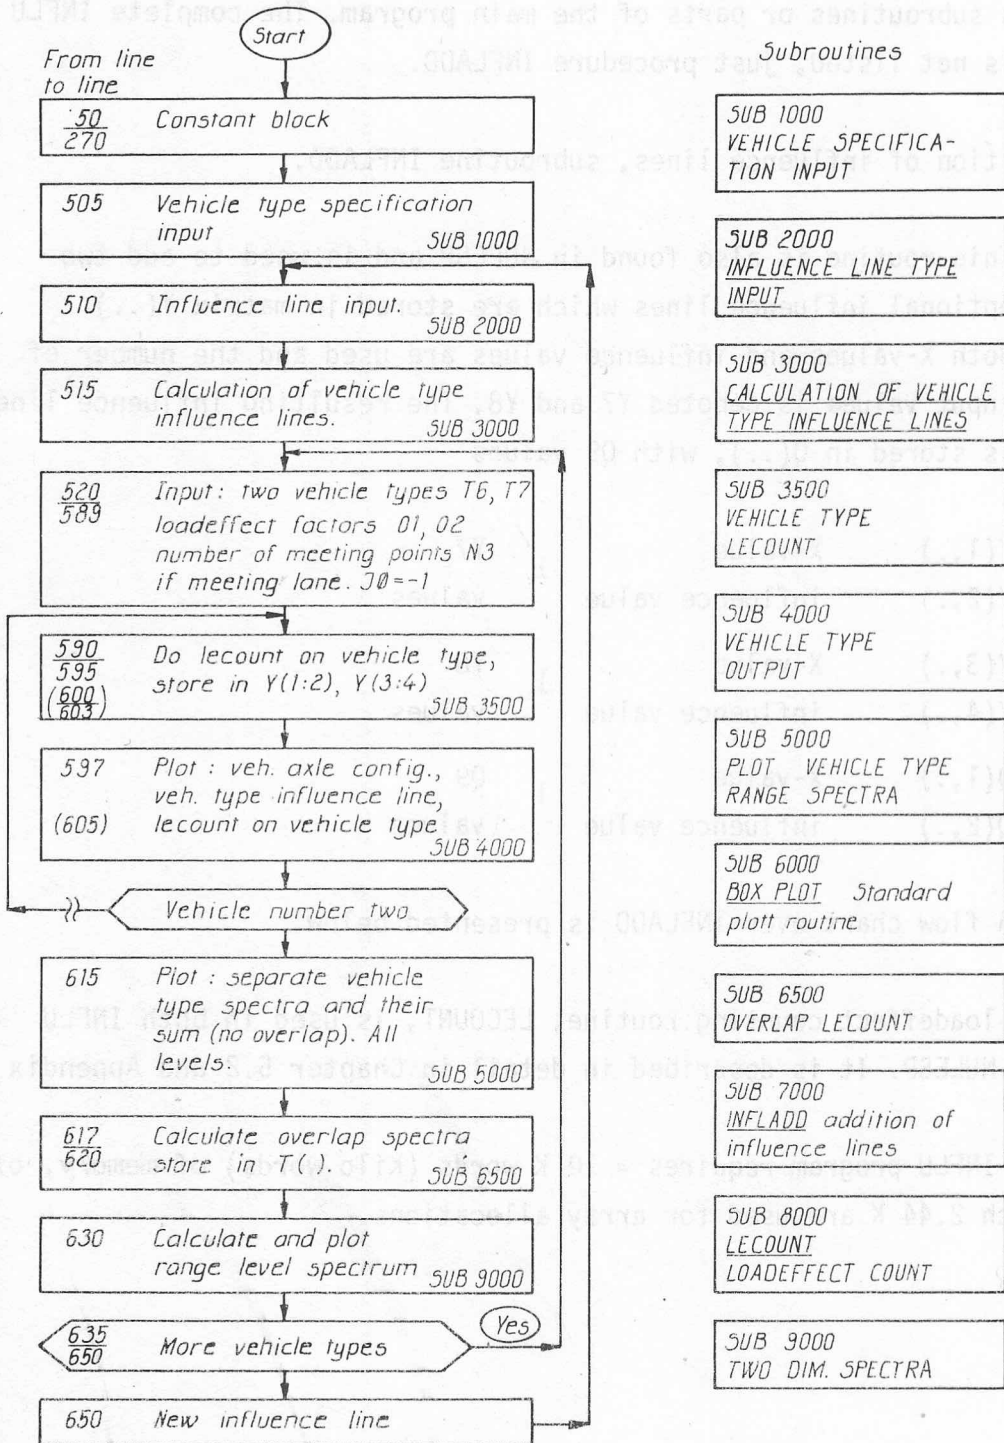 Start
From line
to line
50
270
Constant block
505
Vehicle type specification
input
SUB 1000
510
Influence line input.
SUB 2000
515
Calculation of vehicle type
influence lines.
SUB 3000
520
589
Input: two vehicle types T6, T7
loadeffect factors O1, O2
number of meeting points N3
if meeting lane. J0=-1
590
595
(600
603)
Do lecount on vehicle type,
store in Y(1:2), Y(3:4)
SUB 3500
597
(605)
Plot: veh. axle config.,
veh. type influence line,
lecount on vehicle type
SUB 4000
Vehicle number two
615
Plot: separate vehicle
type spectra and their
sum (no overlap). All
levels.
SUB 5000
617
620
Calculate overlap spectra
store in T().
SUB 6500
630
Calculate and plot
range level spectrum
SUB 9000
635
650
More vehicle types
Yes
650
New influence line
Subroutines
SUB 1000
VEHICLE SPECIFICA-
TION INPUT
SUB 2000
INFLUENCE LINE TYPE
INPUT
SUB 3000
CALCULATION OF VEHICLE
TYPE INFLUENCE LINES
SUB 3500
VEHICLE TYPE
LECOUNT
SUB 4000
VEHICLE TYPE
OUTPUT
SUB 5000
PLOT VEHICLE TYPE
RANGE SPECTRA
SUB 6000
BOX PLOT Standard
plott routine
SUB 6500
OVERLAP LECOUNT
SUB 7000
INFLADD addition of
influence lines
SUB 8000
LECOUNT
LOADEFFECT COUNT
SUB 9000
TWO DIM. SPECTRA